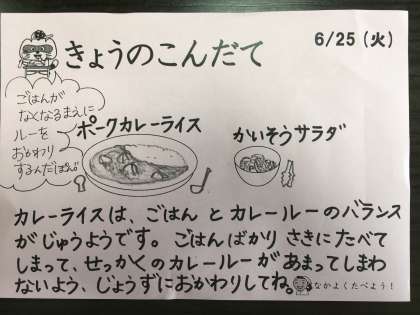 きょうのこんだて
6/25 (火)
ごはんが
なくなるまえに
ルーを
おかわり
するんだぽん。
ポークカレーライス
かいそうサラダ
カレーライスは、ごはん と カレールーのバランス
が じゅうようです。 ごはんばかり さきにたべて
しまって、せっかくの カレールー が あまってしまわ
ないよう、じょうずに おかわりしてね。
なかよくたべよう！